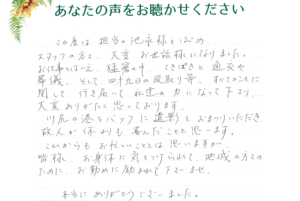 あなたの声をお聴かせください
この度は 担当の池永様をはじめ
スタッフの方々、大変お世話様になりました。
お仕事とはいえ、猛暑の中 てきぱきと通夜や
葬儀、そして四十九日の段取り等、すべてのことに
関して 行き届いて 私達の力になって下さり
大変ありがたく思っております。
川尻の港をバックに遺影とおまつりいただき
故人が何よりも喜んだことと思います。
これからもお忙しいことと思いますが
皆様、お身体に気をつけられて、地域の方々の
ために、お勤めに励まれて下さいませ。
本当にありがとうございました。